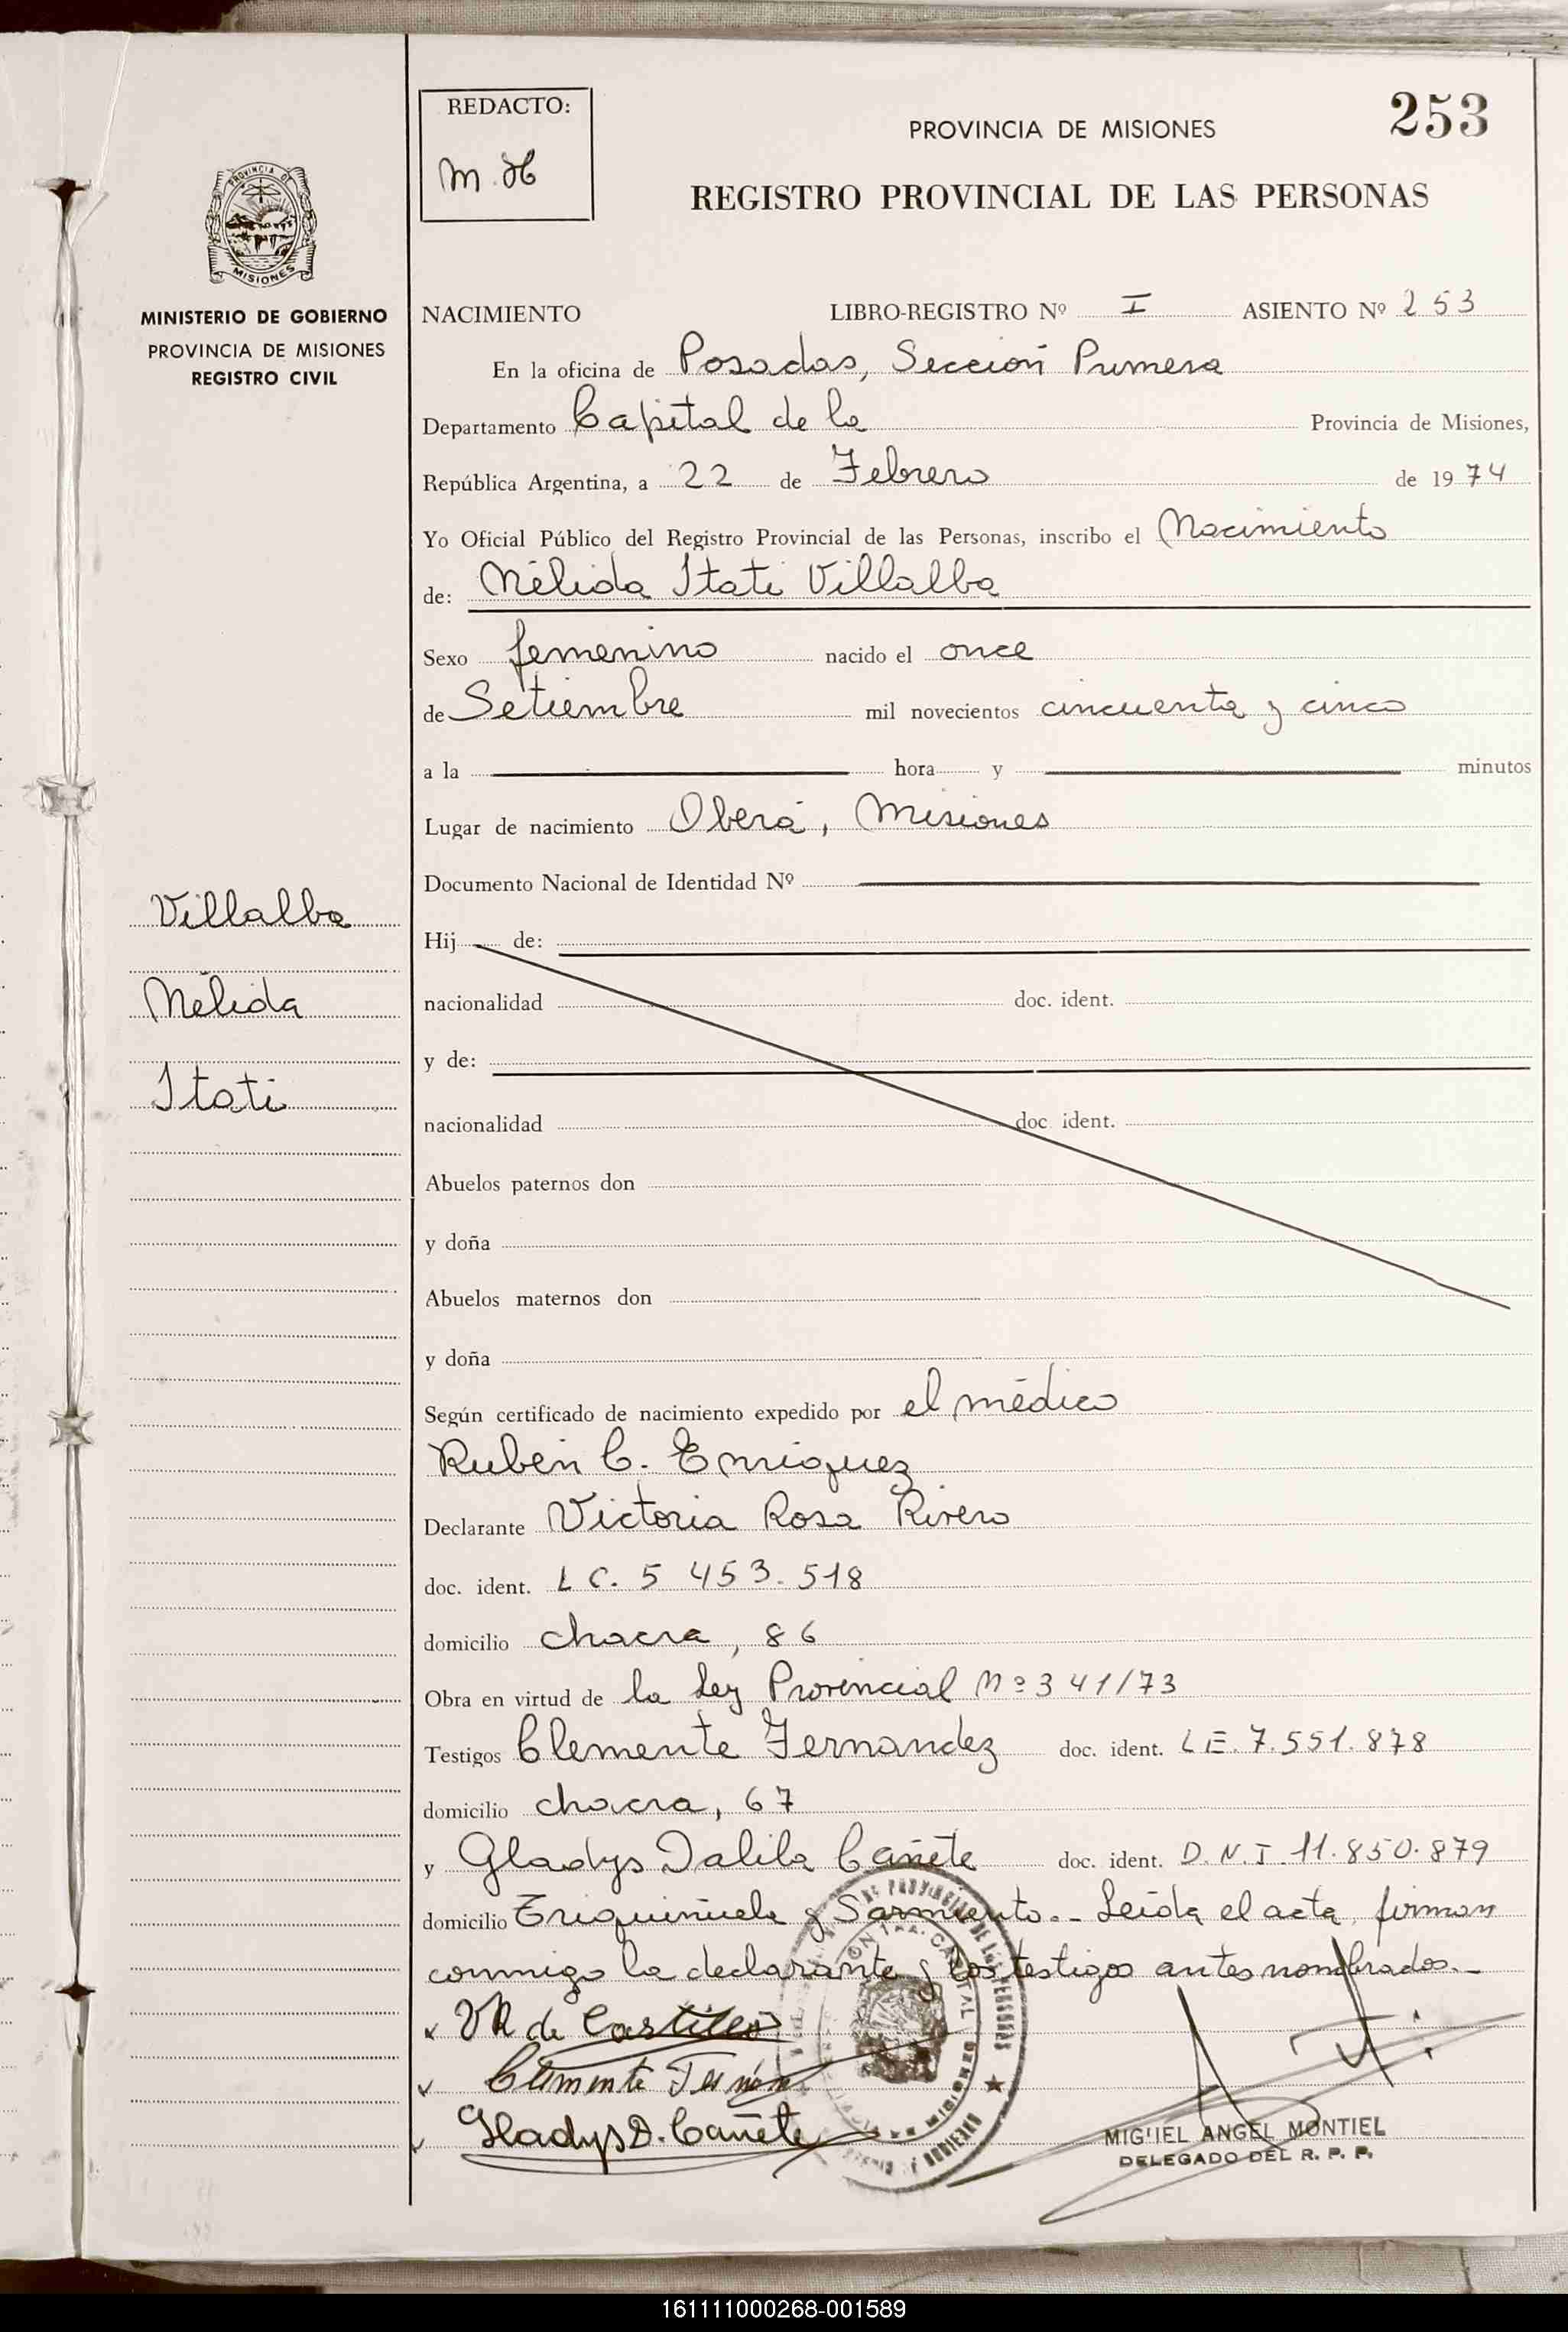 253
REDACTO:
M. H
PROVINCIA DE MISIONES
REGISTRO PROVINCIAL DE LAS PERSONAS
PROVINCIA DE
MISIONES
MINISTERIO DE GOBIERNO
PROVINCIA DE MISIONES
REGISTRO CIVIL
NACIMIENTO LIBRO-REGISTRO Nº I ASIENTO Nº 253
En la oficina de Posadas, Sección Primera
Departamento Capital de la Provincia de Misiones,
República Argentina, a 22 de Febrero de 1974
Yo Oficial Público del Registro Provincial de las Personas, inscribo el Nacimiento
de: Nélida Itati Villalba
Sexo femenino nacido el once
de Setiembre mil novecientos cincuenta y cinco
a la hora y minutos
Lugar de nacimiento Oberá, Misiones
Documento Nacional de Identidad Nº
Villalba
Nélida
Itati
Hij de:
nacionalidad doc. ident.
y de:
nacionalidad doc. ident.
Abuelos paternos don
y doña
Abuelos maternos don
y doña
Según certificado de nacimiento expedido por el médico
Rubén C. Enriquez
Declarante Victoria Rosa Rivero
doc. ident. L C. 5 453.518
domicilio chacra, 86
Obra en virtud de la Ley Provincial Nº 341/73
Testigos Clemente Fernandez doc. ident. L E. 7.551.878
domicilio chacra, 67
y Gladys Dalila Cañete doc. ident. D.N.I. 11.850.879
domicilio Troquiñuela y Sarmiento.- Leída el acta, firman
conmigo la declarante y los testigos antes nombrados.-
VR de Castillo
Clemente Fernan
Gladys D. Cañete
MIGUEL ANGEL MONTIEL
DELEGADO DEL R. P. P.
161111000268-001589